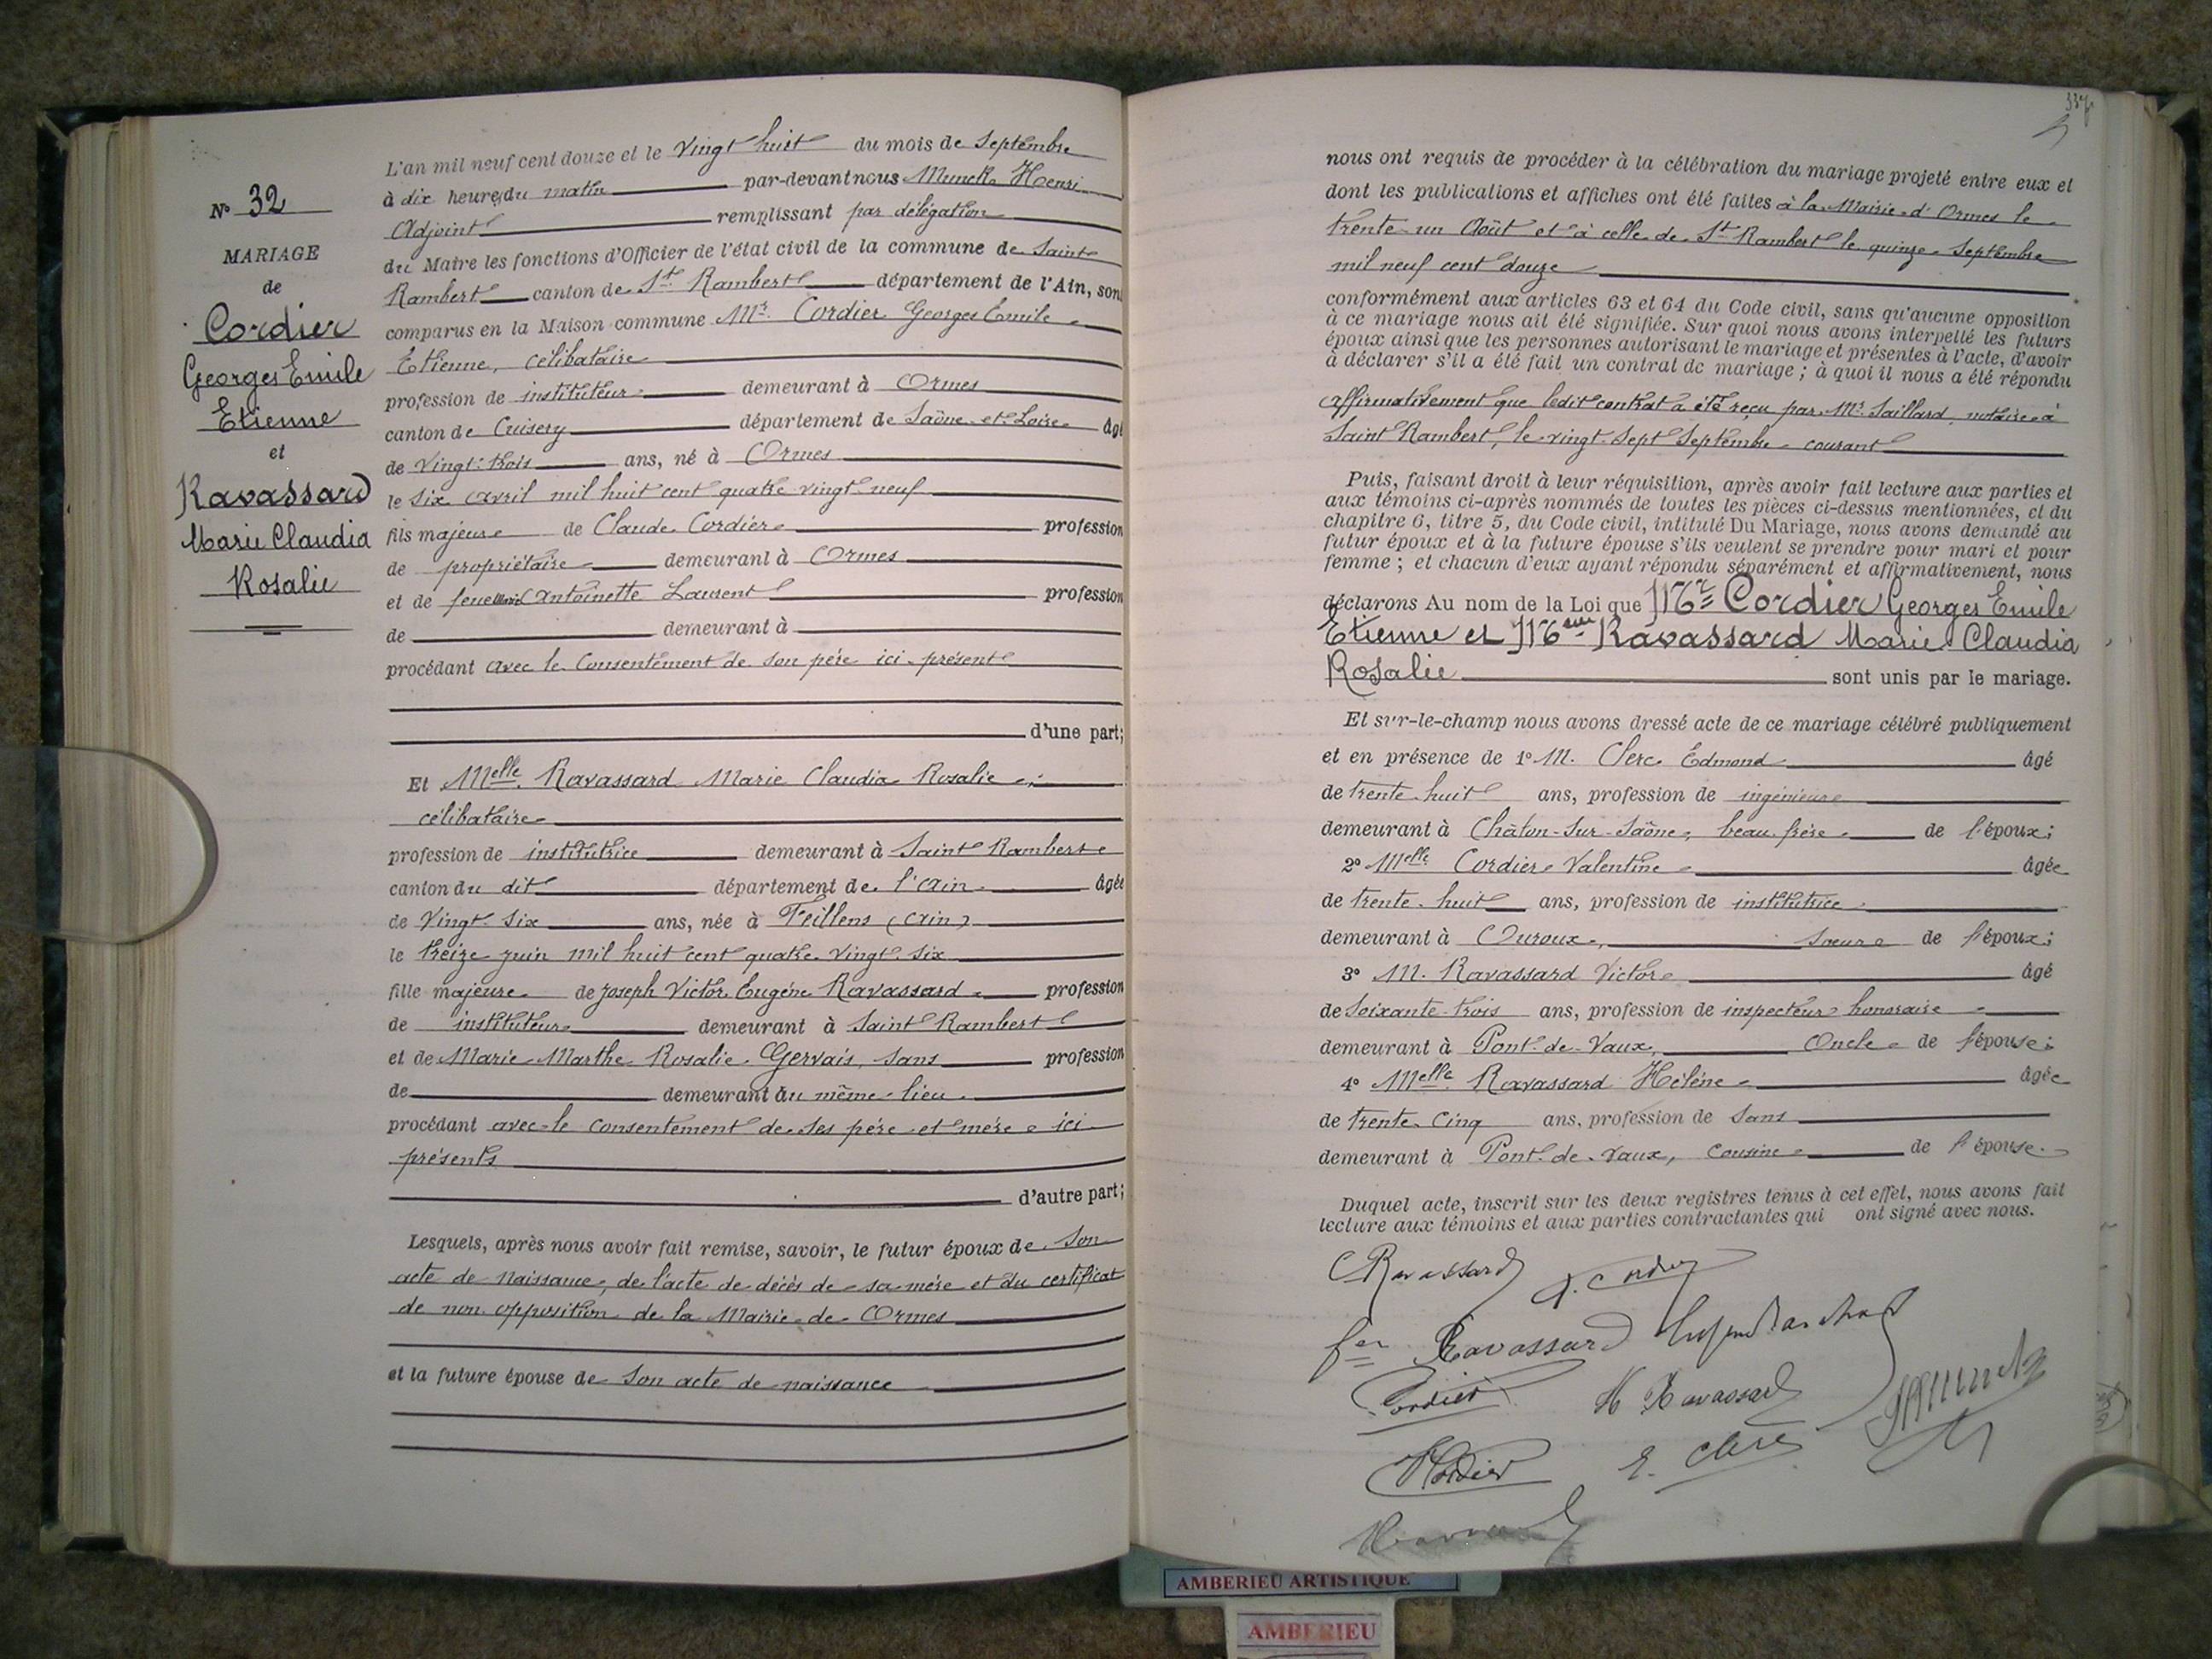 N° 32
MARIAGE
de
Cordier
Georges Emile
Etienne
et
Ravassard
Marie Claudia
Rosalie
L'an mil neuf cent douze et le vingt huit du mois de Septembre
à dix heures du matin par-devant nous Munck Henri
Adjoint remplissant par délégation
du Maire les fonctions d'Officier de l'état civil de la commune de Saint
Rambert canton de St Rambert département de l'Ain, son
comparus en la Maison commune Mr. Cordier Georges Emile
Etienne, célibataire
profession de instituteur demeurant à Ormes
canton de Cuisery département de Saône-et-Loire âgé
de vingt-trois ans, né à Ormes
le six avril mil huit cent quatre vingt neuf
fils majeur de Claude Cordier profession
de propriétaire demeurant à Ormes
et de feue Antoinette Laurent profession
de demeurant à
procédant avec le consentement de son père ici présent
d'une part;
Et Melle Ravassard Marie Claudia Rosalie
célibataire
profession de institutrice demeurant à Saint Rambert
canton du dit département de l'Ain âgée
de vingt-six ans, née à Feillens (Ain)
le treize juin mil huit cent quatre vingt six
fille majeure de Joseph Victor Eugène Ravassard profession
de instituteur demeurant à Saint Rambert
et de Marie Marthe Rosalie Gervais, sans profession
de demeurant au même lieu
procédant avec le consentement de ses père et mère ici
présents
d'autre part;
Lesquels, après nous avoir fait remise, savoir, le futur époux de son
acte de naissance, de l'acte de décès de sa mère et du certificat
de non opposition de la Mairie de Ormes
et la future épouse de son acte de naissance
nous ont requis de procéder à la célébration du mariage projeté entre eux et
dont les publications et affiches ont été faites à la Mairie d'Ormes le
trente-un Août et à celle de St Rambert le quinze Septembre
mil neuf cent douze
conformément aux articles 63 et 64 du Code civil, sans qu'aucune opposition
à ce mariage nous ait été signifiée. Sur quoi nous avons interpellé les futurs
époux ainsi que les personnes autorisant le mariage et présentes à l'acte, d'avoir
à déclarer s'il a été fait un contrat de mariage ; à quoi il nous a été répondu
affirmativement que ledit contrat a été reçu par Mr. Saillard, notaire à
Saint Rambert, le vingt-sept Septembre courant
Puis, faisant droit à leur réquisition, après avoir fait lecture aux parties et
aux témoins ci-après nommés de toutes les pièces ci-dessus mentionnées, et du
chapitre 6, titre 5, du Code civil, intitulé Du Mariage, nous avons demandé au
futur époux et à la future épouse s'ils veulent se prendre pour mari et pour
femme ; et chacun d'eux ayant répondu séparément et affirmativement, nous
déclarons Au nom de la Loi que Mr Cordier Georges Emile
Etienne et Ravassard Marie Claudia
Rosalie sont unis par le mariage.
Et sur-le-champ nous avons dressé acte de ce mariage célébré publiquement
et en présence de 1° M. Clerc Edmond âgé
de trente huit ans, profession de ingénieur
demeurant à Châlon-sur-Saône, beau frère de l'époux;
2° Melle Cordier Valentine âgée
de trente-huit ans, profession de institutrice
demeurant à Ouroux, soeur de l'époux;
3° M. Ravassard Victor âgé
de soixante-trois ans, profession de inspecteur honoraire
demeurant à Pont-de-Vaux, Oncle de l'épouse;
4° Melle Ravassard Hélène âgée
de trente cinq ans, profession de sans
demeurant à Pont-de-Vaux, cousine de l'épouse.
Duquel acte, inscrit sur les deux registres tenus à cet effet, nous avons fait
lecture aux témoins et aux parties contractantes qui ont signé avec nous.
C Ravassard G. Cordier
Ravassard
Cordier H Ravassard
E. Clerc
AMBERIEU ARTISTIQUE
AMBERIEU